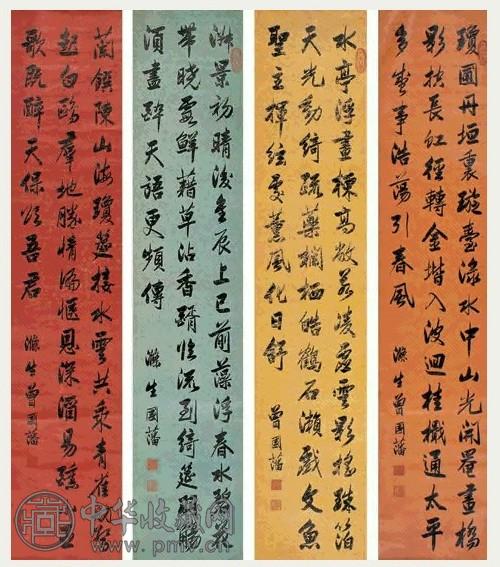 瓊圃丹垣裏璇臺淥水中山光開罨畫橋
影扶長虹徑轉金堦入波迴桂檝通太平
多事浩蕩引春風
滌生曾國藩
水亭浮畫棟高敞若凌虛雲影搖珠箔
天光動綺疏藥欄栖皓鶴石瀨戲文魚
聖主揮絃處薰風化日舒
曾國藩
淑景初晴後良辰上巳前藻浮春水碧花
帶曉露鮮藉草沾香醑臨流到綺筵羽觴
須盡醉天語更頻傳
滌生國藩
蘭饌陳山海瓊筵接水雲共乘青雀舫驚
起白鷗羣地勝情偏愜恩深酒易醺工
歌既醉天保頌吾君
滌生曾國藩
中华收藏网